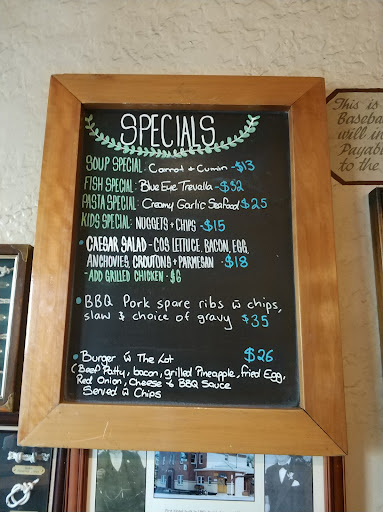 SPECIALS
SOUP SPECIAL: Carrot + Cumin -$13
FISH SPECIAL: Blue Eye Trevalla -$32
PASTA SPECIAL: Creamy Garlic Seafood $25
KIDS SPECIAL: NUGGETS + CHIPS -$15
• CAESAR SALAD - COS LETTUCE, BACON, EGG,
ANCHOVIES, CROUTONS + PARMESAN -$18
-ADD GRILLED CHICKEN -$6
• BBQ Pork spare ribs w chips,
slaw & choice of gravy $35
• Burger w The Lot $26
(Beef Patty, bacon, grilled Pineapple, fried Egg,
Red Onion, Cheese & BBQ Sauce
Served w Chips
This is
Baseba
will in
Payabl
to the